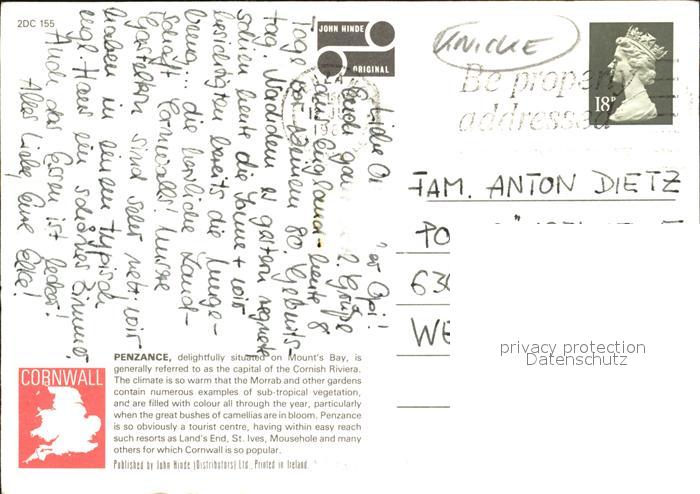 2DC 155
JOHN HINDE
ORIGINAL
KNICKE
Be properly
addressed
18P
Liebe Omi + er Opi!
Euch ganz Grüße
aus England - heute 8
Tage vor deinem 80. Geburts-
tag. Nachdem es gestern regnete
schien heute die Sonne + wir
besichtigten bereits die Umge-
bung... die herrliche Land-
schaft Cornwalls! Unsere
Gasteltern sind sehr nett. wir
haben in einem typisch
engl. Haus ein schönes Zimmer.
Auch das Essen ist lecker!
Alles Liebe, Eure Elke!
FAM. ANTON DIETZ
PO
630
WE
privacy protection
Datenschutz
CORNWALL
PENZANCE, delightfully situated on Mount's Bay, is
generally referred to as the capital of the Cornish Riviera.
The climate is so warm that the Morrab and other gardens
contain numerous examples of sub-tropical vegetation,
and are filled with colour all through the year, particularly
when the great bushes of camellias are in bloom. Penzance
is so obviously a tourist centre, having within easy reach
such resorts as Land's End, St. Ives, Mousehole and many
others for which Cornwall is so popular.
Published by John Hinde (Distributors) Ltd., Printed in Ireland.